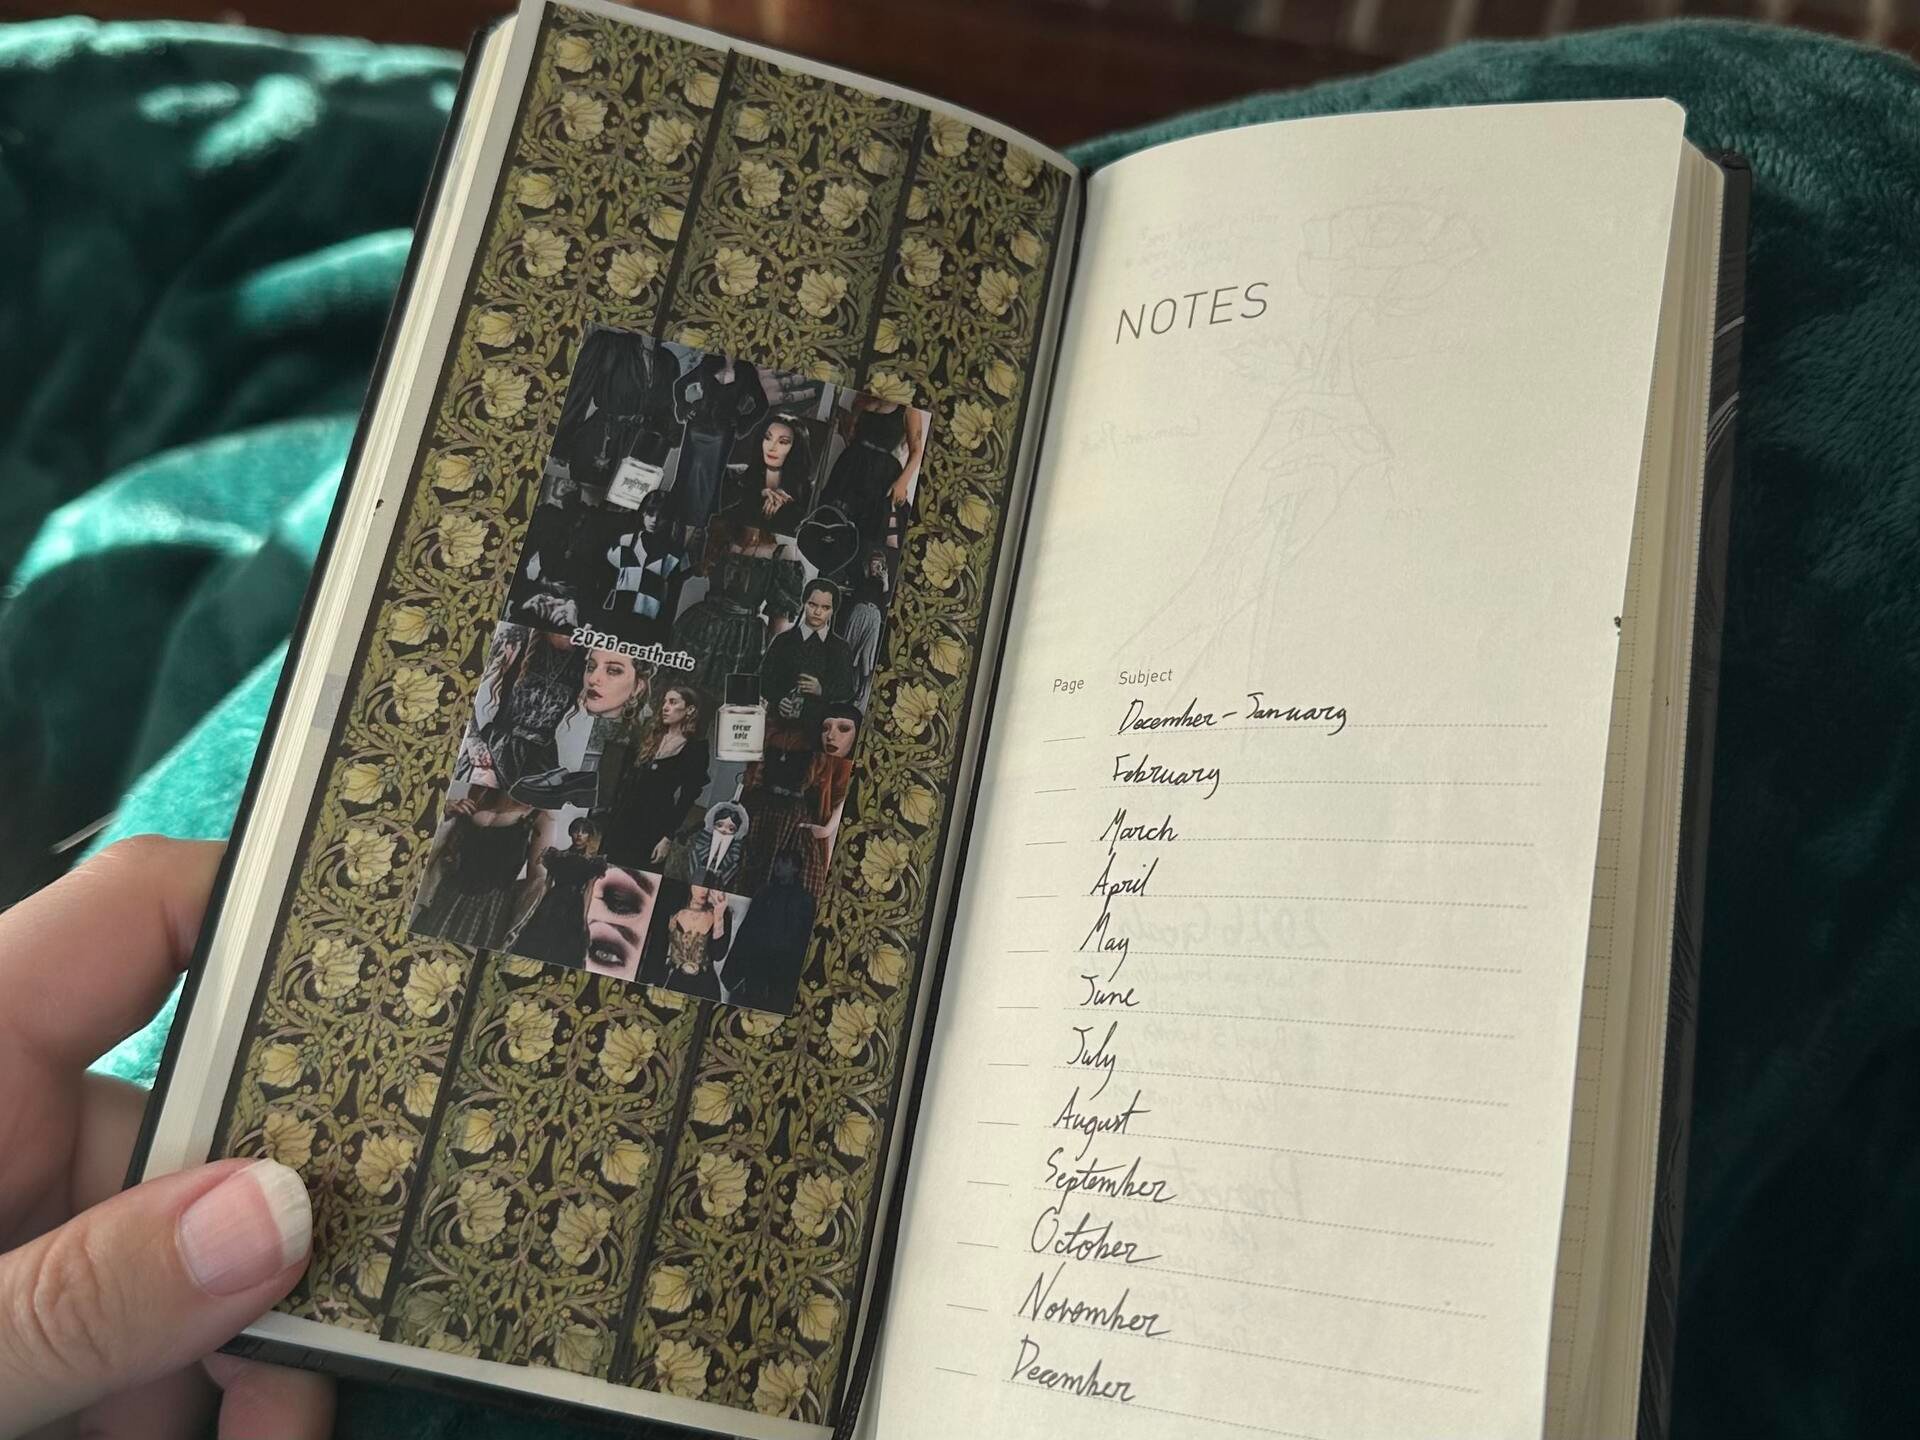 2026 aesthetic
coeur
noir
NOTES
Page Subject
December - January
February
March
April
May
June
July
August
September
October
November
December
2026 Goals